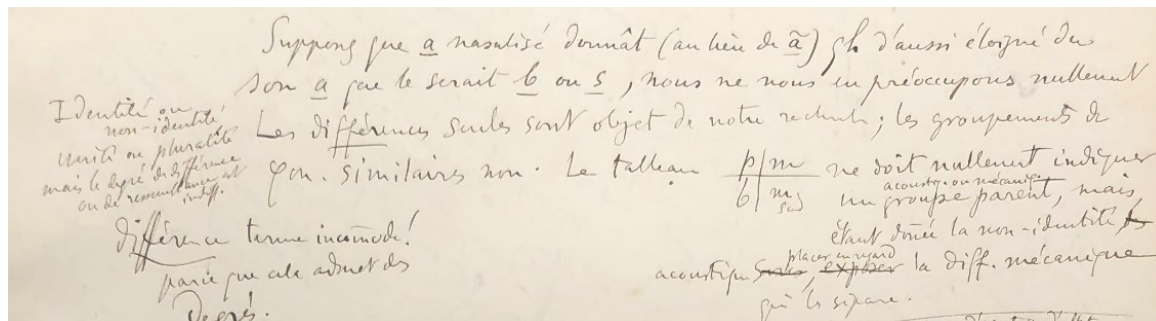 Supposons que a nasalisé donnât (au lieu de ã) qch d'aussi éloigné du
son a que le serait b ou s, nous ne nous en préoccupons nullement
Les différences seules sont objet de notre recherche; les groupements de
phon. similaires non. Le tableau p | m ne doit nullement indiquer
b | m
acoustiq. ou mécaniq.
un groupe parent, mais
étant donnée la non-identité
placer en regard
acoustique exposer la diff. mécanique
qui les sépare.
Identité ou
non-identité
unité ou pluralité
mais le degré de différence
ou de ressemblance est
indiff.
différence terme incomode!
parce que cela admet des
Degrés.